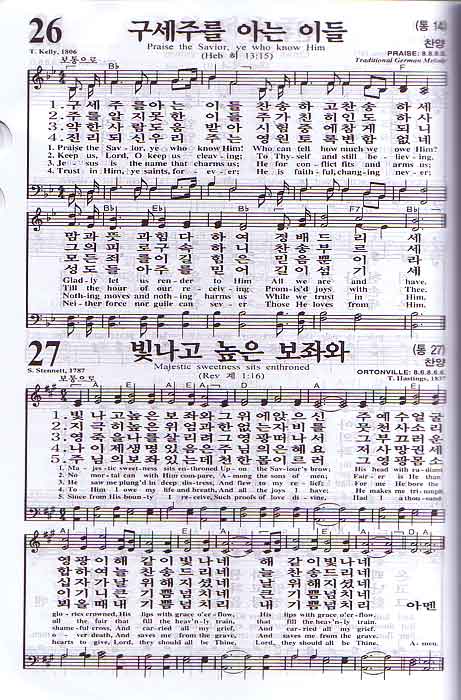 26 구세주를 아는 이들 (통 14)
Praise the Savior, ye who know Him 찬양
T. Kelly, 1806 (Heb 히 13:15) PRAISE: 8.8.8.5.
보통으로 Traditional German Melody
B♭
1. 구 세 주 를 아 는 이 들 찬 송 하 고 찬 송 하 세
2. 주 를 알 지 못 한 이 들 주 가 친 히 인 도 하 사
3. 약 한 사 람 도 움 받 아 시 험 중 에 참 게 되 니
4. 진 되 신 우 리 주 는 영 원 토 록 변 함 없 네
1. Praise the Sav- ior, ye who know Him! Who can tell how much we owe Him?
2. Keep us, Lord, O keep us cleav- ing; To Thy-self and still be- liev- ing,
3. Je- sus is the name that charms us; He for con-flict fits and arms us;
4. Trust in Him, ye saints, for- ev- er; He is faith-ful, chang-ing nev- er;
B♭ F7 B♭
맘 과 뜻 과 힘 다 하 여 경 배 드 리 세
그 의 피 로 구 속 하 니 찬 송 부 르 세
모 든 죄 를 이 길 힘 은 믿 음 뿐 이 라
성 도 들 아 주 를 믿 어 길 이 섬 기 세
Glad-ly let us ren-der to Him All we are and have.
Till the hour of our re-ceiv-ing Prom-is'd joys with Thee.
Noth-ing moves and noth-ing harms us While we trust in Him.
Nei-ther force nor guile can sev-er Those He loves from Him.
27 빛나고 높은 보좌와 (통 27)
Majestic sweetness sits enthroned 찬양
S. Stennett, 1787 (Rev 계 1:16) ORTONVILLE: 8.6.8.6.6.
보통으로 T. Hastings, 1837
A E A E A
1. 빛 나 고 높 은 보 좌 와 그 위 에 앉 으 신 주 예 수 얼 굴
2. 지 극 히 높 은 위 엄 과 한 없 는 자 비 를
3. 영 죽 을 나 를 살 리 려
1. Ma- jes-tic sweet-ness sits en-throned Up-on the Sav-iour's brow; His head with ra-diant
2. No mor-tal can with Him com-pare, A-mong the sons of men; Fair-er is He than
3. He saw me plung'd in deep dis-tress, And flew to my re-lief; For me He bore the
4. To Him I owe my life and breath, And all the joys I have; He makes me tri-umph
5. Since from His boun-ty I re-ceive, Such proofs of love di-vine, Had I a thou-sand
A E A D A
영 광 이 해 같 이 빛 나 네 해 같 이 빛 나 네
늘 찬 송 드 리 네
십 자 가 위 해 지 셨 네 날 위 해 지 셨 네
이 기 니 큰 기 쁨 넘 치 네 큰 기 쁨 넘 치 네
뵈 올 때 내 기 쁨 넘 치 리 내 기 쁨 넘 치 리 아멘
glo-ries crowned, His lips with grace o'er-flow, His lips with grace o'er-flow.
all the fair that fill the heav'n-ly train, that fill the heav'n-ly train.
shame-ful cross, And car-ried all my grief, And car-ried all my grief.
o-ver death, And saves me from the grave, And saves me from the grave.
hearts to give, Lord, they should all be Thine, Lord, they should all be Thine. A-men.